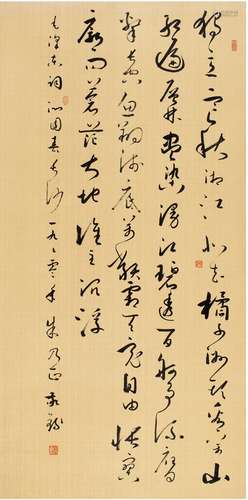 独立寒秋湘江北去橘子洲头看万山
红遍层林尽染漫江碧透百舸争流鹰
击长空鱼翔浅底万类霜天竞自由怅寥
廓问苍茫大地谁主沉浮
毛泽东词沁园春长沙 朱乃正敬录